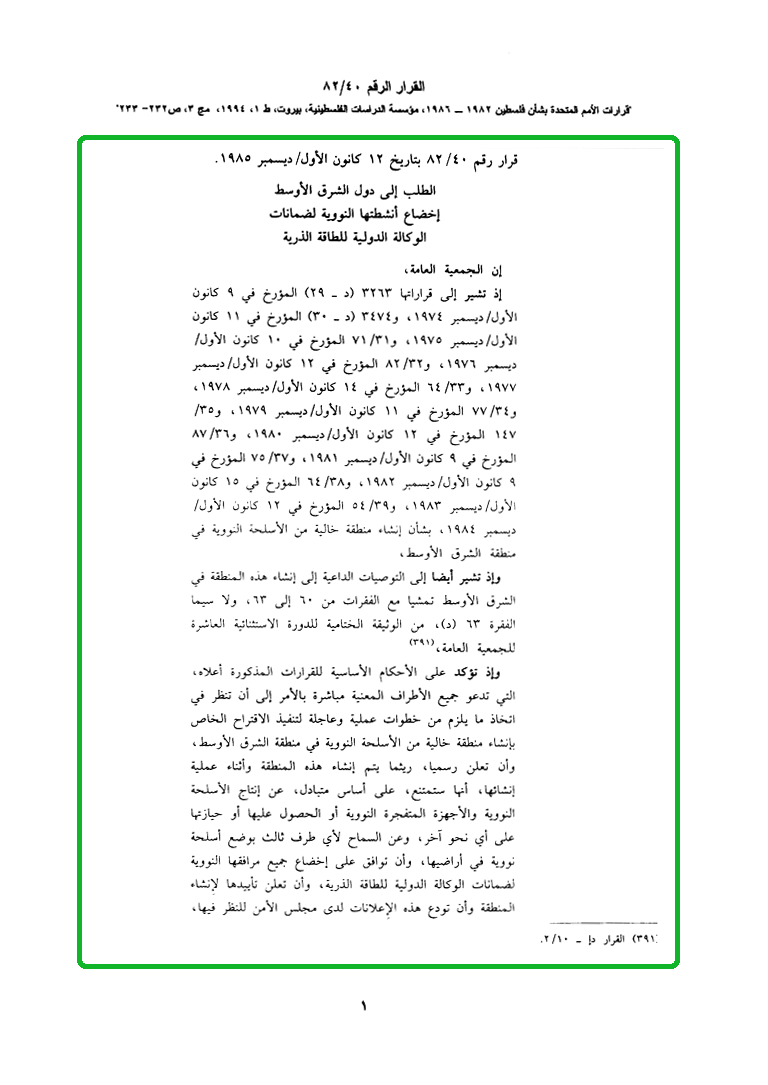 القرار الرقم ٨٢/٤٠
"قرارات الأمم المتحدة بشأن فلسطين ١٩٨٢ – ١٩٨٦، مؤسسة الدراسات الفلسطينية، بيروت، ط ١، ١٩٩٤، مج ٣، ص٢٣٢- ٢٣٣"
قرار رقم ٨٢/٤٠ بتاريخ ١٢ كانون الأول/ديسمبر ١٩٨٥.
الطلب إلى دول الشرق الأوسط
إخضاع أنشطتها النووية لضمانات
الوكالة الدولية للطاقة الذرية
إن الجمعية العامة،
إذ تشير إلى قراراتها ٣٢٦٣ (د ـ ٢٩) المؤرخ في ٩ كانون
الأول/ديسمبر ١٩٧٤، و٣٤٧٤ (د ـ ٣٠) المؤرخ في ١١ كانون
الأول/ديسمبر ١٩٧٥، و٧١/٣١ المؤرخ في ١٠ كانون الأول/
ديسمبر ١٩٧٦، و٨٢/٣٢ المؤرخ في ١٢ كانون الأول/ديسمبر
١٩٧٧، و٦٤/٣٣ المؤرخ في ١٤ كانون الأول/ديسمبر ١٩٧٨،
و٧٧/٣٤ المؤرخ في ١١ كانون الأول/ديسمبر ١٩٧٩، و٣٥/
١٤٧ المؤرخ في ١٢ كانون الأول/ديسمبر ١٩٨٠، و٨٧/٣٦
المؤرخ في ٩ كانون الأول/ديسمبر ١٩٨١، و٧٥/٣٧ المؤرخ في
٩ كانون الأول/ديسمبر ١٩٨٢، و٦٤/٣٨ المؤرخ في ١٥ كانون
الأول/ديسمبر ١٩٨٣، و٥٤/٣٩ المؤرخ في ١٢ كانون الأول/
ديسمبر ١٩٨٤، بشأن إنشاء منطقة خالية من الأسلحة النووية في
منطقة الشرق الأوسط،
وإذ تشير أيضا إلى التوصيات الداعية إلى إنشاء هذه المنطقة في
الشرق الأوسط تمشيا مع الفقرات من ٦٠ إلى ٦٣، ولا سيما
الفقرة ٦٣ (د)، من الوثيقة الختامية للدورة الاستثنائية العاشرة
للجمعية العامة،(٣٩١)
وإذ تؤكد على الأحكام الأساسية للقرارات المذكورة أعلاه،
التي تدعو جميع الأطراف المعنية مباشرة بالأمر إلى أن تنظر في
اتخاذ ما يلزم من خطوات عملية وعاجلة لتنفيذ الاقتراح الخاص
بإنشاء منطقة خالية من الأسلحة النووية في منطقة الشرق الأوسط،
وأن تعلن رسميا، ريثما يتم إنشاء هذه المنطقة وأثناء عملية
إنشائها، أنها ستمتنع، على أساس متبادل، عن إنتاج الأسلحة
النووية والأجهزة المتفجرة النووية أو الحصول عليها أو حيازتها
على أي نحو آخر، وعن السماح لأي طرف ثالث بوضع أسلحة
نووية في أراضيها، وأن توافق على إخضاع جميع مرافقها النووية
لضمانات الوكالة الدولية للطاقة الذرية، وأن تعلن تأييدها لإنشاء
المنطقة وأن تودع هذه الإعلانات لدى مجلس الأمن للنظر فيها،
(٣٩١) القرار دإ ـ ٢/١٠.
١